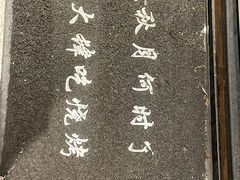 秋月何时了
大 吃烧烤